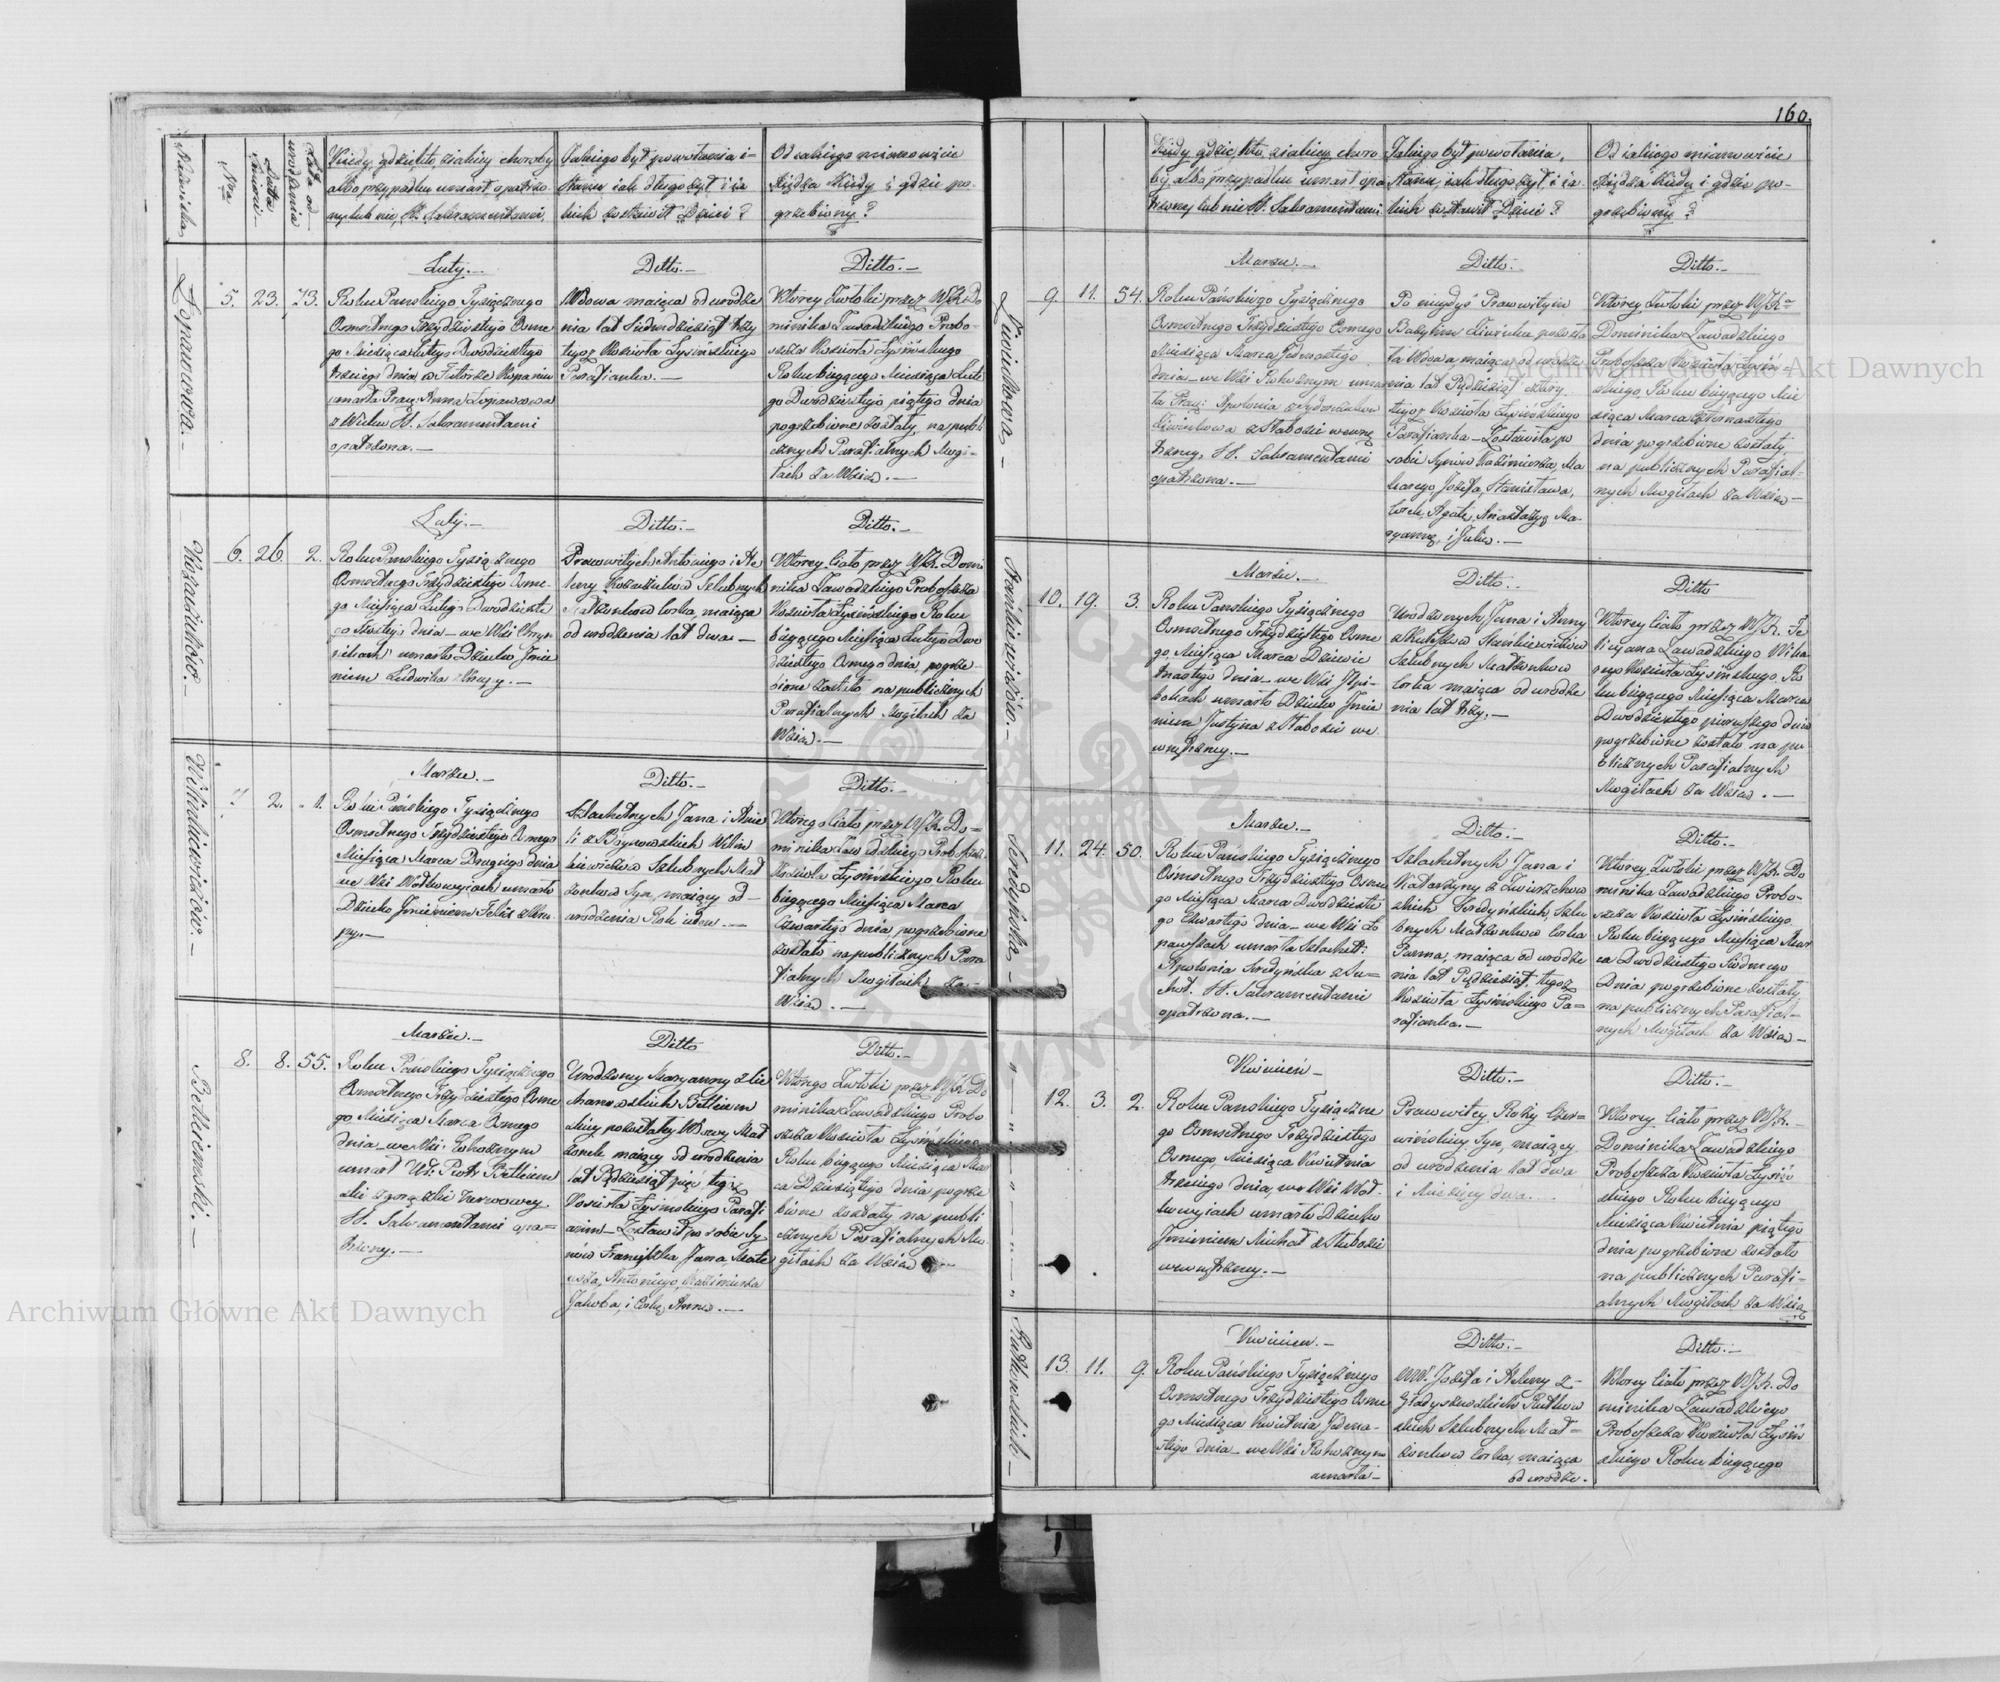 160.
Nazwiska
Nro
Data Śmierci
Lata od urodzenia
Kiedy, gdzie, kto, z jakiey choroby
albo przypadku umarł opatrzo-
ny lub nie, SS. Sakramentami,
Jakiego był powołania i-
Stanu iak długo żył, i ia
kich zostawił Dzieci?
Od jakiego mianowicie
Xiędza Kiedy i gdzie po-
grzebiony?
Łopanowa.
5. 23. 73.
Luty.
Roku Pańskiego Tysiącznego
Osmsetnego Trzydziestego Osme
go Miesiąca Lutego Dwudziestego
trzeciego dnia, w Futorze
umarła Prac: Anna Łopanowa
z Wieku SS. Sakramentami
opatrzona.
Ditto.
Wdowa maiąca od urodze
nia lat Siedmdziesiąt trzy
tegoż Kościoła Łysińskiego
Parafianka.
Ditto.
Ktorey Zwłoki przez WJX. Do
minika Zawadzkiego Probo-
szcza Kościoła Łysińskiego
Roku bieżącego Miesiąca Lute
go Dwudziestego piątego dnia
pogrzebione zostały, na publi
cznych Parafialnych Mogi-
łach za Wsią.
6. 26. 2.
Luty.
Roku Pańskiego Tysiącznego
Osmsetnego Trzydziestego Osme-
go Miesiąca Lutego Dwudzieste
go Szóstego dnia we Wsi
umarło Dziecko Jmie
niem Ludwika z Krupy.
Ditto.
Prawowitych Antoniego i He
leny Ślubnych
Małżonków Corka, maiąca
od urodzenia lat dwa
Ditto.
Ktorey Ciało przez WJX. Domi
nika Zawadzkiego Proboszcza
Kościoła Łysińskiego Roku
bieżącego Miesiąca Lutego Dwu
dziestego Osmego dnia, pogrze-
bione zostało na publicznych
Parafialnych Mogiłach za
Wsią.
7. 2. 1.
Marzec.
Roku Pańskiego Tysiącznego
Osmsetnego Trzydziestego Osmego
Miesiąca Marca Drugiego dnia
we Wsi Wodkowyiach umarło
Dziecko Jmieniem Felix z Kru-
py.
Ditto.
Szlachetnych Jana i Anie
li z
Ślubnych Mał
żonków Syn, maiący od
urodzenia Rok ieden.
Ditto.
Ktorego Ciało przez WJX. Do-
minika Zawadzkiego Proboszcz.
Kościoła Łysińskiego Roku
bieżącego Miesiąca Marca
Czwartego dnia pogrzebione
zostało na publicznych Para
fialnych Mogiłach za
Wsią.
8. 8. 55.
Marzec.
Roku Pańskiego Tysiącznego
Osmsetnego Trzydziestego Osme
go Miesiąca Marca Osmego
dnia we Wsi Rohoznym
umarł Ur: Piotr
z gorączki nerwowey
SS. Sakramentami opa-
trzony.
Ditto
Urodzoney Maryanny z
pozostałey Wdowy Mał
żonek maiący od urodzenia
lat Pędziesiąt pięć, tegoż
Kościoła Łysińskiego Parafi
anin Zostawił po sobie Sy
nów Franciszka, Jana, Mate
usza, Antoniego, Kazimierza
Jakuba, i Corkę Annę.
Ditto.
Ktorego Zwłoki przez WJX. Do
minika Zawadzkiego Probo
szcza Kościoła Łysińskiego
Roku bieżącego Miesiąca Mar
ca Dziesiątego dnia pogrze
bione zostały na publi
cznych Parafialnych Mo
giłach za Wsią
Kiedy, gdzie, kto, z jakiey choro
by albo przypadku umarł opa
trzony lub nie SS. Sakramentami
Jakiego był powołania,
Stanu, iak długo żył, i ia-
kich zostawił Dzieci?
Od iakiego mianowicie
Xiędza Kiedy i gdzie po-
grzebiony?
9. 11. 54.
Marzec.
Roku Pańskiego Tysiącznego
Osmsetnego Trzydziestego Osmego
Miesiąca Marca Jedenastego
dnia we Wsi Rohoznym umar
ła Prac: Apolonia
z słabości wewnę
trzney, SS. Sakramentami
opatrzona.
Ditto.
Po niegdyś Prawowitym
pozosta
ła Wdowa, maiąca od urodze
nia lat Pędziesiąt cztery,
tegoż Kościoła Łysińskiego
Parafianka Zostawiła po
sobie Synów Kazimierza, Ma
karego, Józefa, Stanisława,
Corki, Agatę, Anastazyą, Ma-
ryannę, i Julię.
Ditto.
Ktorey Zwłoki przez WJX.
Dominika Zawadzkiego
Proboszcza Kościoła Łysiń-
skiego, Roku bieżącego Mie
siąca Marca Czternastego
dnia pogrzebione zostały,
na publicznych Parafial-
nych Mogiłach za Wsią
10. 19. 3.
Marzec.
Roku Pańskiego Tysiącznego
Osmsetnego Trzydziestego Osme
go Miesiąca Marca Dziewię
tnastego dnia we Wsi
umarło Dziecko Jmie
niem Justyna z słabości we
wnętrzney.
Ditto.
Urodzonych Jana i Anny
Ślubnych Małżonków
Corka maiąca od urodze
nia lat trzy.
Ditto
Ktorey Ciało przez WJX. Fe
licyana Zawadzkiego Wika
rego Kościoła Łysińskiego, Ro
ku bieżącego Miesiąca Marca
Dwudziestego pierwszego dnia
pogrzebione zostało na pu
blicznych Parafialnych
Mogiłach za Wsią.
Seredyńska
11. 24. 50.
Marzec.
Roku Pańskiego Tysiącznego
Osmsetnego Trzydziestego Osme
go Miesiąca Marca Dwudzieste
go Czwartego dnia we Wsi
umarła Szlachet:
Apolonia Seredyńska z Su-
chot. SS. Sakramentami
opatrzona.
Ditto.
Szlachetnych Jana i
Katarzyny z
Seredyńskich, Ślu
bnych Małżonków Corka
Panna, maiąca od urodze
nia lat Pędziesiąt, tegoż
Kościoła Łysińskiego Pa-
rafianka.
Ditto.
Ktorey Zwłoki przez WJX. Do
minika Zawadzkiego Probo-
szcza Kościoła Łysińskiego
Roku bieżącego Miesiąca Mar
ca Dwudziestego Siódmego
Dnia pogrzebione zostały
na publicznych Parafial-
nych Mogiłach za Wsią
12. 3. 2.
Kwiecień
Roku Pańskiego Tysiączne
go Osmsetnego Trzydziestego
Osmego, Miesiąca Kwietnia
trzeciego dnia, we Wsi Wod-
kowyiach umarło Dziecko
Jmieniem Michał z słabości
wewnętrzney.
Ditto.
Prawowitey Roży Czer-
wińskiey Syn, maiący
od urodzenia lat dwa
i Miesięcy dwa.
Ditto.
Ktorey Ciało przez WJX.
Dominika Zawadzkiego
Proboszcza Kościoła Łysiń
skiego Roku bieżącego
Miesiąca Kwietnia piątego
dnia pogrzebione zostało
na publicznych Parafi-
alnych Mogiłach za Wsią
Rutkowskich
13. 11. 9.
Kwiecień.
Roku Pańskiego Tysiącznego
Osmsetnego Trzydziestego Osme
go Miesiąca Kwietnia Jedena-
stego dnia we Wsi Rohoznym
umarła
Ditto.
WW. Józefa i Heleny z
Gładyszewskich Rutkow
skich Ślubnych Mał-
żonków Corka, maiąca
od urodze.
Ditto.
Ktorey Ciało przez WJX. Do
minika Zawadzkiego
Proboszcza Kościoła Łysiń
skiego Roku bieżącego
Archiwum Główne Akt Dawnych
Archiwum Główne Akt Dawnych